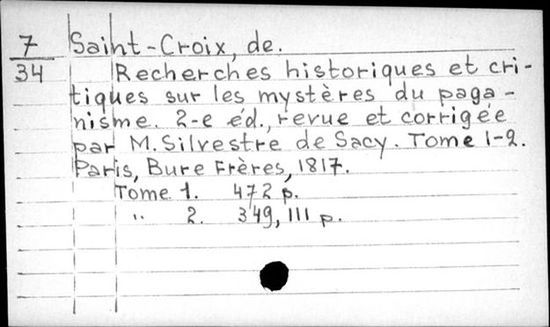 7 Saint-Croix, de.
34 Recherches historiques et cri-
tiques sur les mystères du paga-
nisme. 2-e éd., revue et corrigée
par M. Silvestre de Sacy. Tome 1-2.
Paris, Bure Frères, 1817.
Tome 1. 472 p.
" 2. 349, III p.